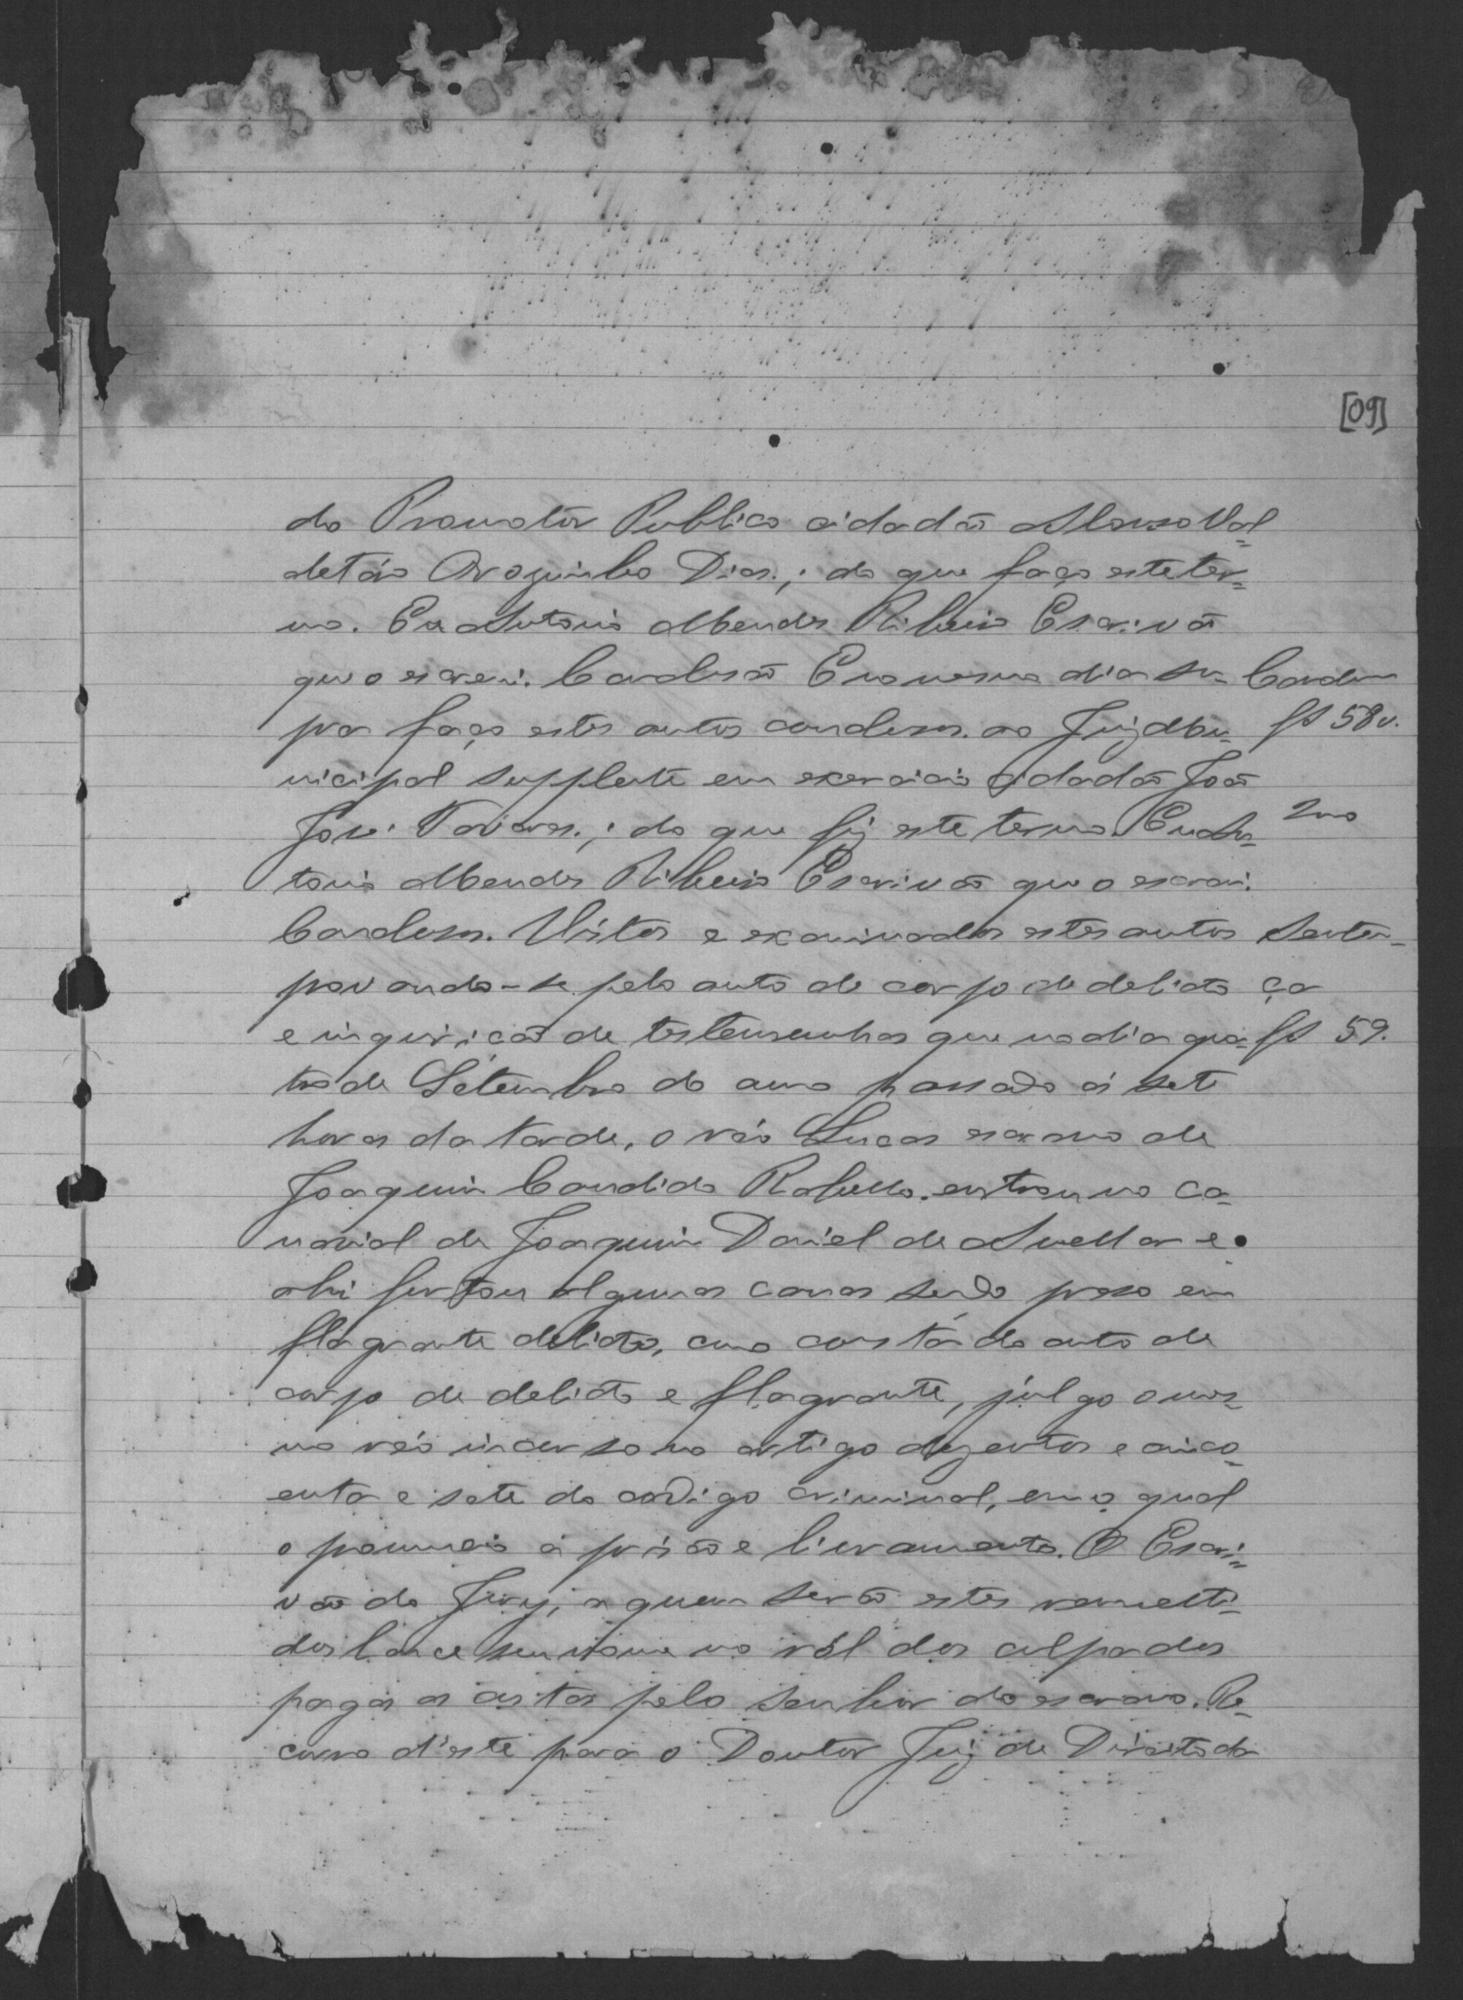 [09]
do Promotor Publico cidadão Afonso Val=
detaro Orozimbo Dias.; do que faço este ter=
mo. Eu Antonio Mendes Ribeiro Escrivão
que o escrevi. Conclusão E no mesmo dia su= Conclu
pra faço estes autos conclusos. ao Juiz Mu= fs 58v.
nicipal supplente em exercicio cidadão João
José Tavares.; do que fiz este termo. Eu An=
tonio Mendes Ribeiro Escrivão que o escrevi.
Conclusos. Vistos e examinados estes autos Senten=
provando-se pelo auto de corpo de delicto ça
e inquirição de testemunhas que no dia qua= fs 59.
tro de Setembro do anno passado ás sete
horas da tarde, o réo Lucas escravo de
Joaquim Candido Rabello. entrou no ca=
navial de Joaquim Daniel de Avellar e
ahi furtou algumas canas sendo preso em
flagrante delicto, como consta do auto de
corpo de delicto e flagrante, julgo o mes=
mo réo incurso no artigo duzentos e cinco=
enta e sete do codigo criminal, em o qual
o pronuncio á prisão e livramento. O Escri=
vão do Jury, a quem serão estes remetti=
dos lance seu nome no ról dos culpados
pagas as custas pelo senhor do escravo. Re=
curso d'este para o Doutor Juiz de Direito da